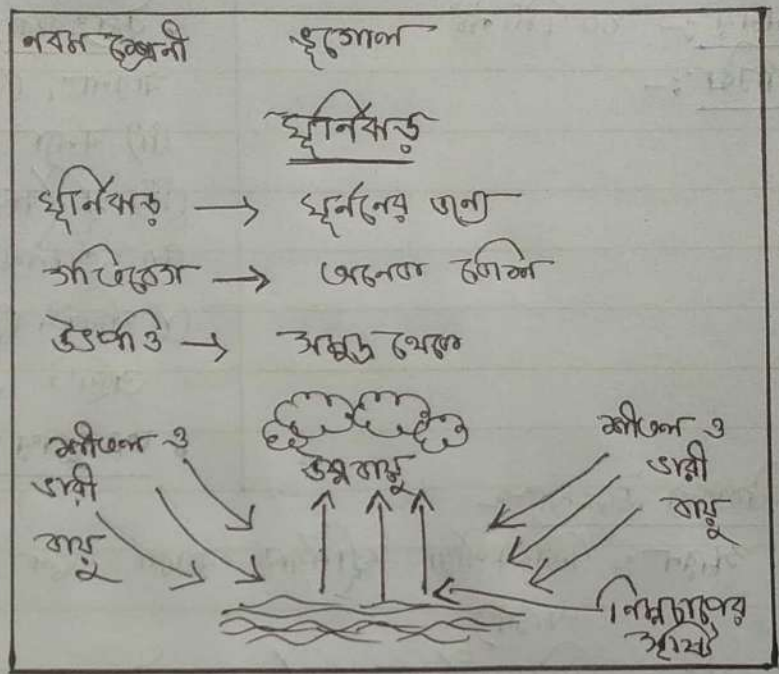 নবম শ্রেনী ভূগোল
ঘূর্নিঝড়
ঘূর্নিঝড় → ঘূর্ননের জন্যে
গতিবেগ → অনেক বেশি
উৎপত্তি → সমুদ্র থেকে
শীতল ও
ভারী
বায়ু
উষ্ণ বায়ু
শীতল ও
ভারী
বায়ু
নিম্নচাপের
সৃষ্টি